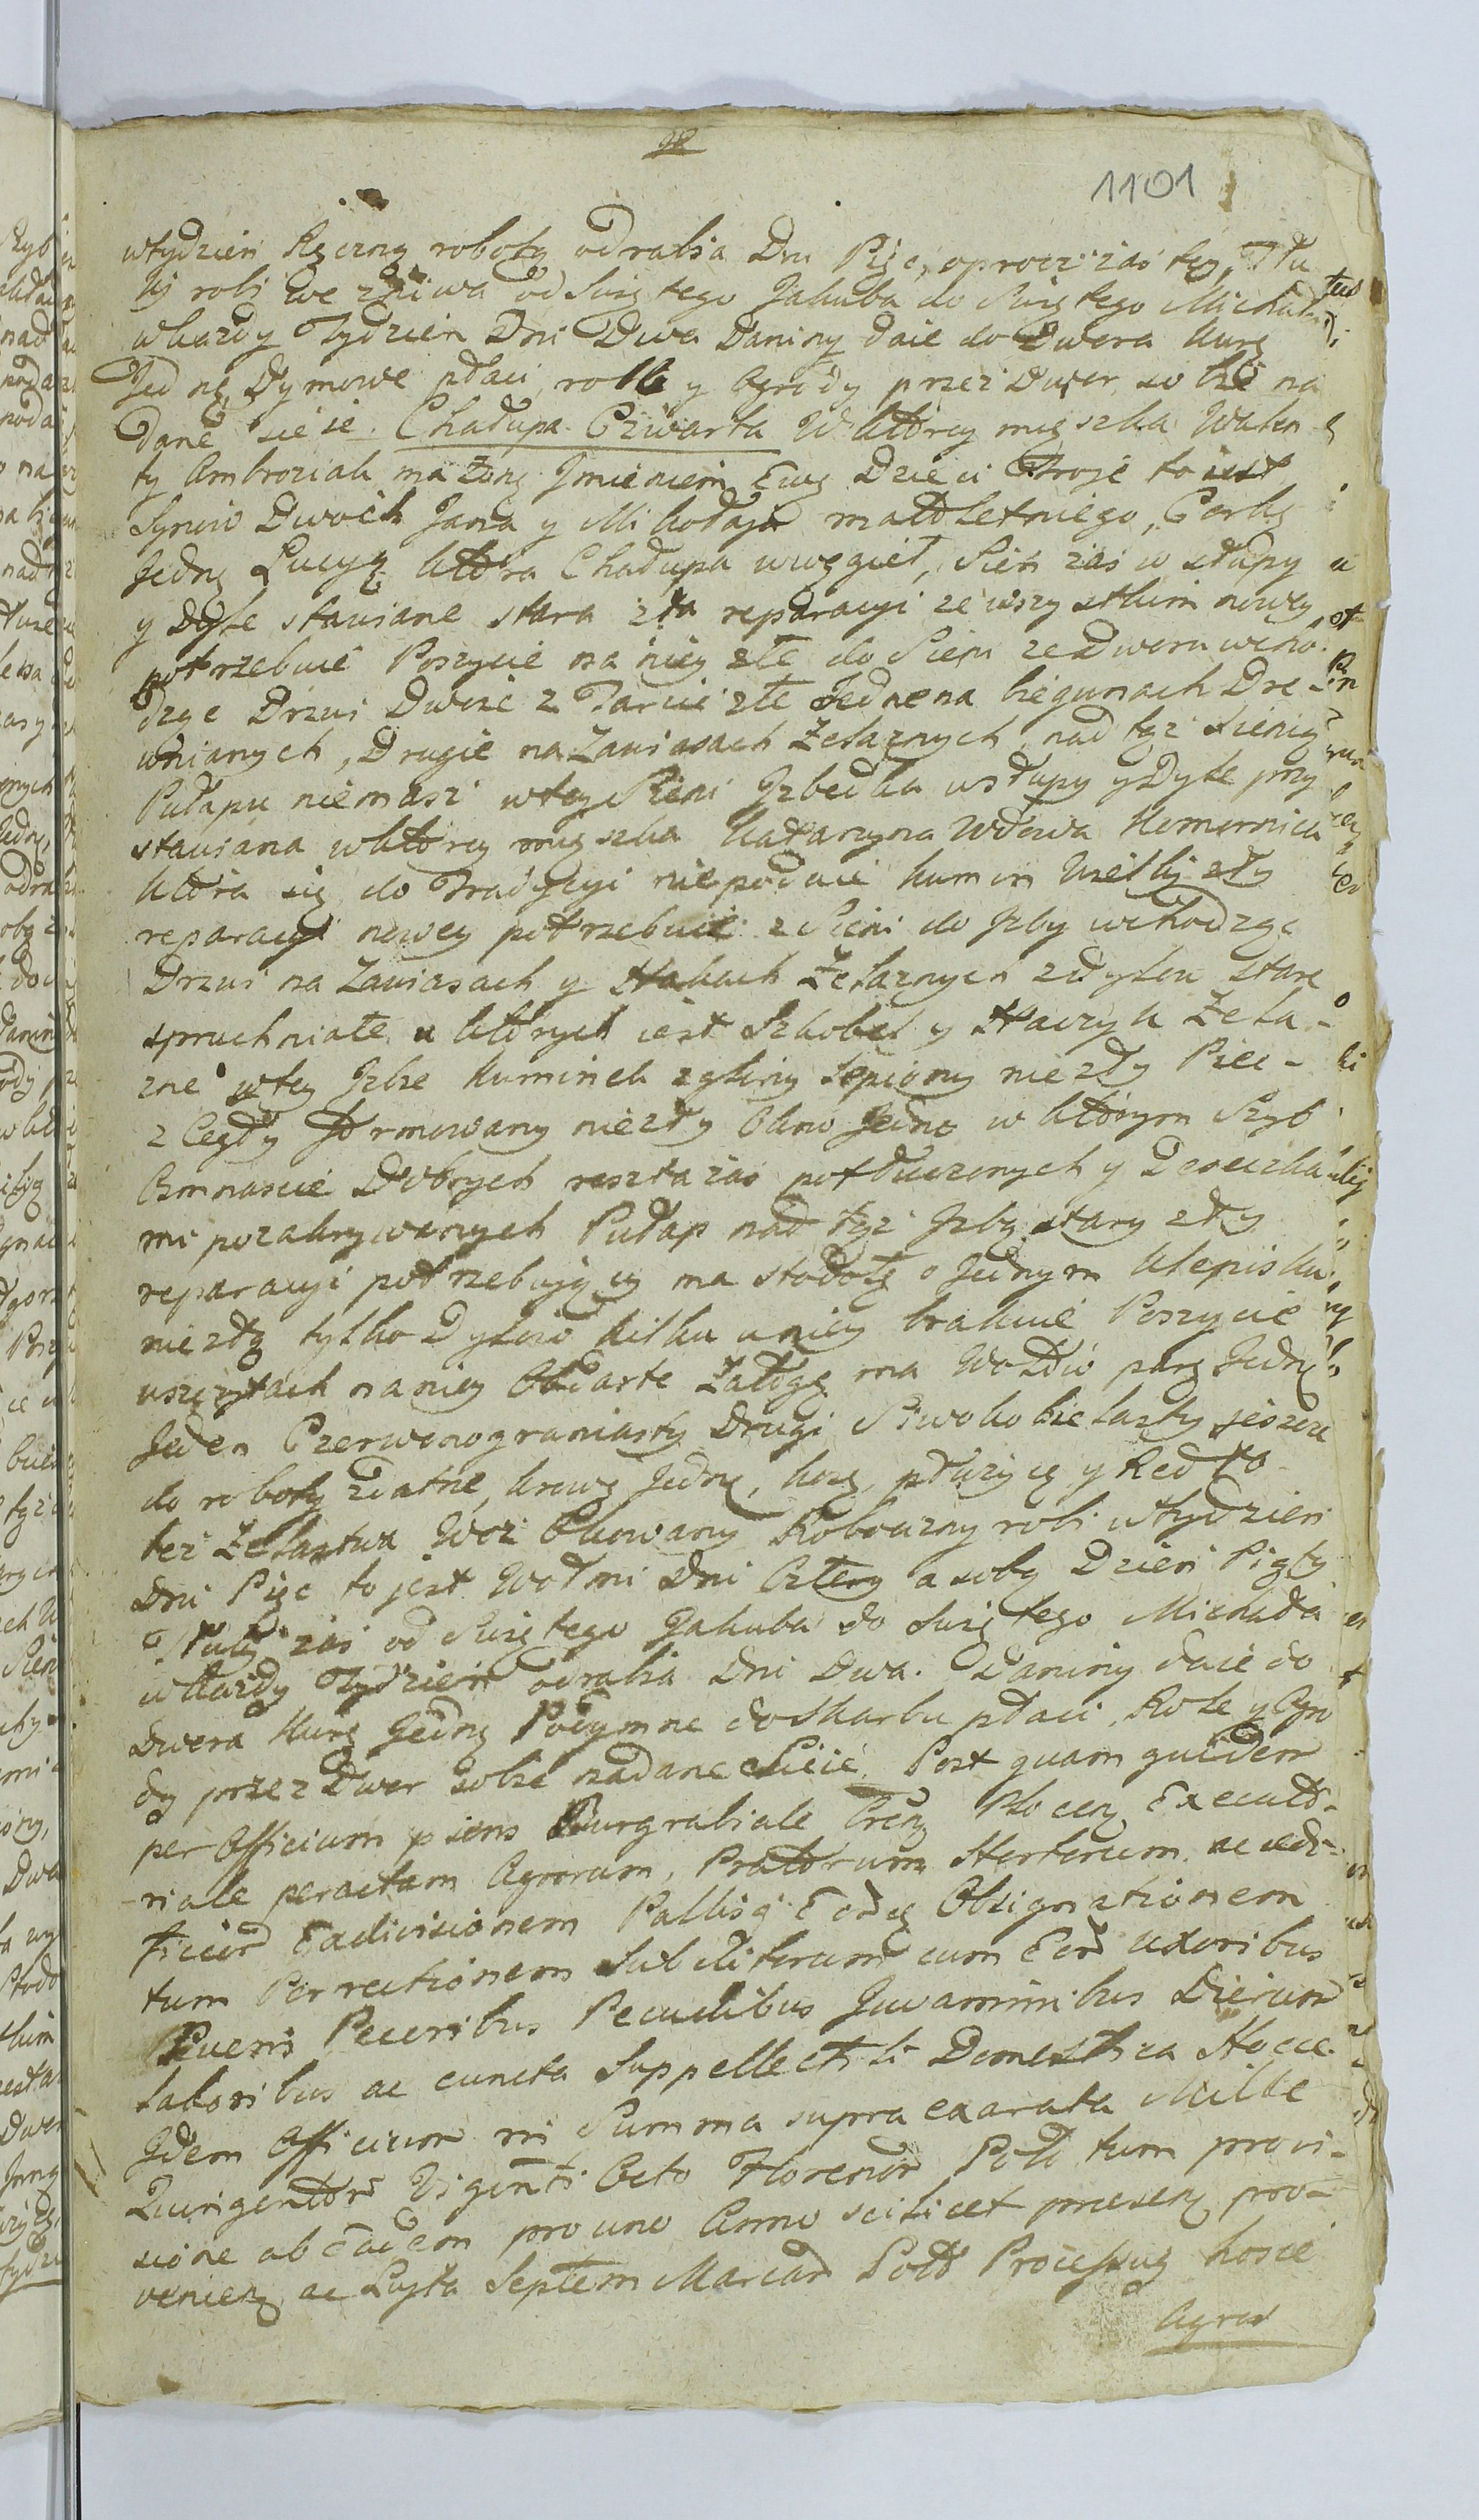 1101
wtydzień Ręczny roboty odrabia Dni Pięć, oprocz zas tey, Tłu
ki robi we zniwa od Swiętego Jakuba do Swiętego Michała
wkazdy Tydzien Dni Dwa Daniny daie do Dwora kurę
Jednę, Dymowe płaci, rolle y Ogrody przez Dwor sobie na
dane sieie. Chałupa Czwarta W ktorey mięszka Walen
ty Ambroziak ma Zonę Jmieniem Ewę Dzieci Troje to iest
Synow Dwoch Jana y Mikołaja małoletniego, Corkę
Jednę Lucyą ktora Chałupa wwęgieł, Sień zas w słupy
y Dyle stawiane stara zła reparacyi ze wszystkim nowey
potrzebuie Poszycie na niey złe do Sieni ze Dworu wcho
dząc Drzwi Dwoie z Tarcic złe Jedne na biegunach Dre
wnianych, Drugie na Zawiasach Zelaznych, nad tąz Sienią
Pułapu niemasz wtey Sieni Jzbedka wsłupy y Dyle przy
stawiana wktorey mięszka Katarzyna Wdowa Komornica
ktora się do Tradycyi niepodaie kumin Wielki zły
reparacyi nowey potrzebuie z Sieni do Jzby wchodząc
Drzwi na Zawiasach y Hakach Zelaznych zdylow stare
spruchniałe u ktorych iest Skobel y Haczyk Zela-
zne wtey Jzbie kuminek zgliny lepiony niezły Piec
z Cegły formowany niezły Okno Jedno w ktorym Szyb
Osmnascie Dobrych reszta zas potłuczonych y Deseczka
mi pozakrywanych Pułap nad tąz Jzbą stary zły
reparacyi potrzebuiący ma stodołę o Jednym klepisku
niezłą tylko Dylow kilku uniey brakuie Poszycie
uszczytach naniey Obdarte Załogę ma Wołow parę Jednę
Jeden Czerwonograniasty Drugi Siwokobielasty jeszcze
do roboty zdatne, krowę Jednę, kosę, płużycę y Redło
bez Zelaztwa Woz Okowany Robocizny robi wtydzien
Dni Pięc to jest Wołmi Dni Cztery a sobą Dzien Piąty
Tłuki zas od Swiętego Jakuba do Swiętego Michała
wkazdy Tydzien odrabia Dni Dwa. Daniny daie do
Dwora Kurę Jednę Podymne do Skarbu płaci, Role y Ogro
dy przez Dwor sobie nadane Sieie. Post quam quidem
per Officium psens Burgrabiale Ploceń Executo-
riale peractam Agrorum, Pratorum Hortorum, ac aedi-
ficior Exdivisionem Obsignationem
tum Perrectionem Subditorum cum Eor uxoribus
Pueris Pecoribus Pecudibus Juvaminibus Dierum
laboribus ac cuncta Suppellectili Domestica Hocce
Jdem Officium in Summa supra exarata Mille
Quingentor Viginti Octo Florenor Poll tum provi-
sione ab eadem pro uno Anno scilicet praesen prov-
venien ac Luyta Septem Marcar Poll hosce
Agros